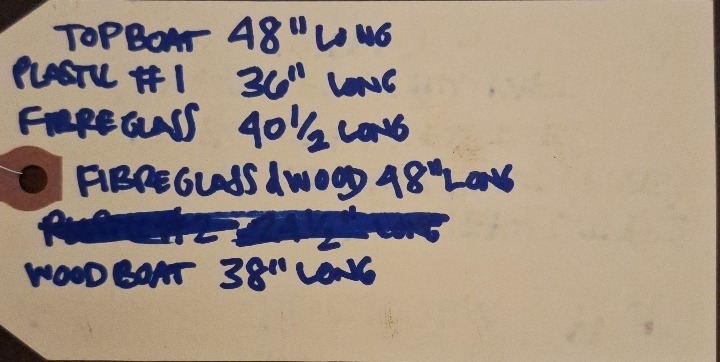 TOPBOAT 48" LONG
PLASTIC #1 36" LONG
FIBREGLASS 40 1/2 LONG
FIBREGLASS & WOOD 48" LONG
WOOD BOAT 38" LONG